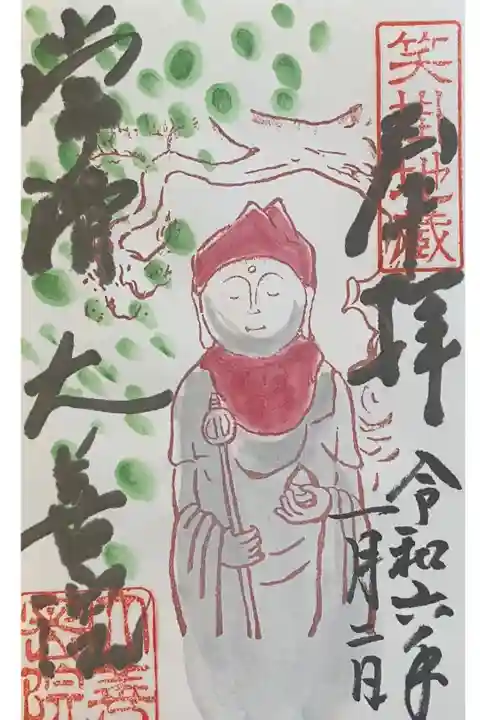 笑掛地蔵
奉拝
令和六年
一月二日
常滑
大善院